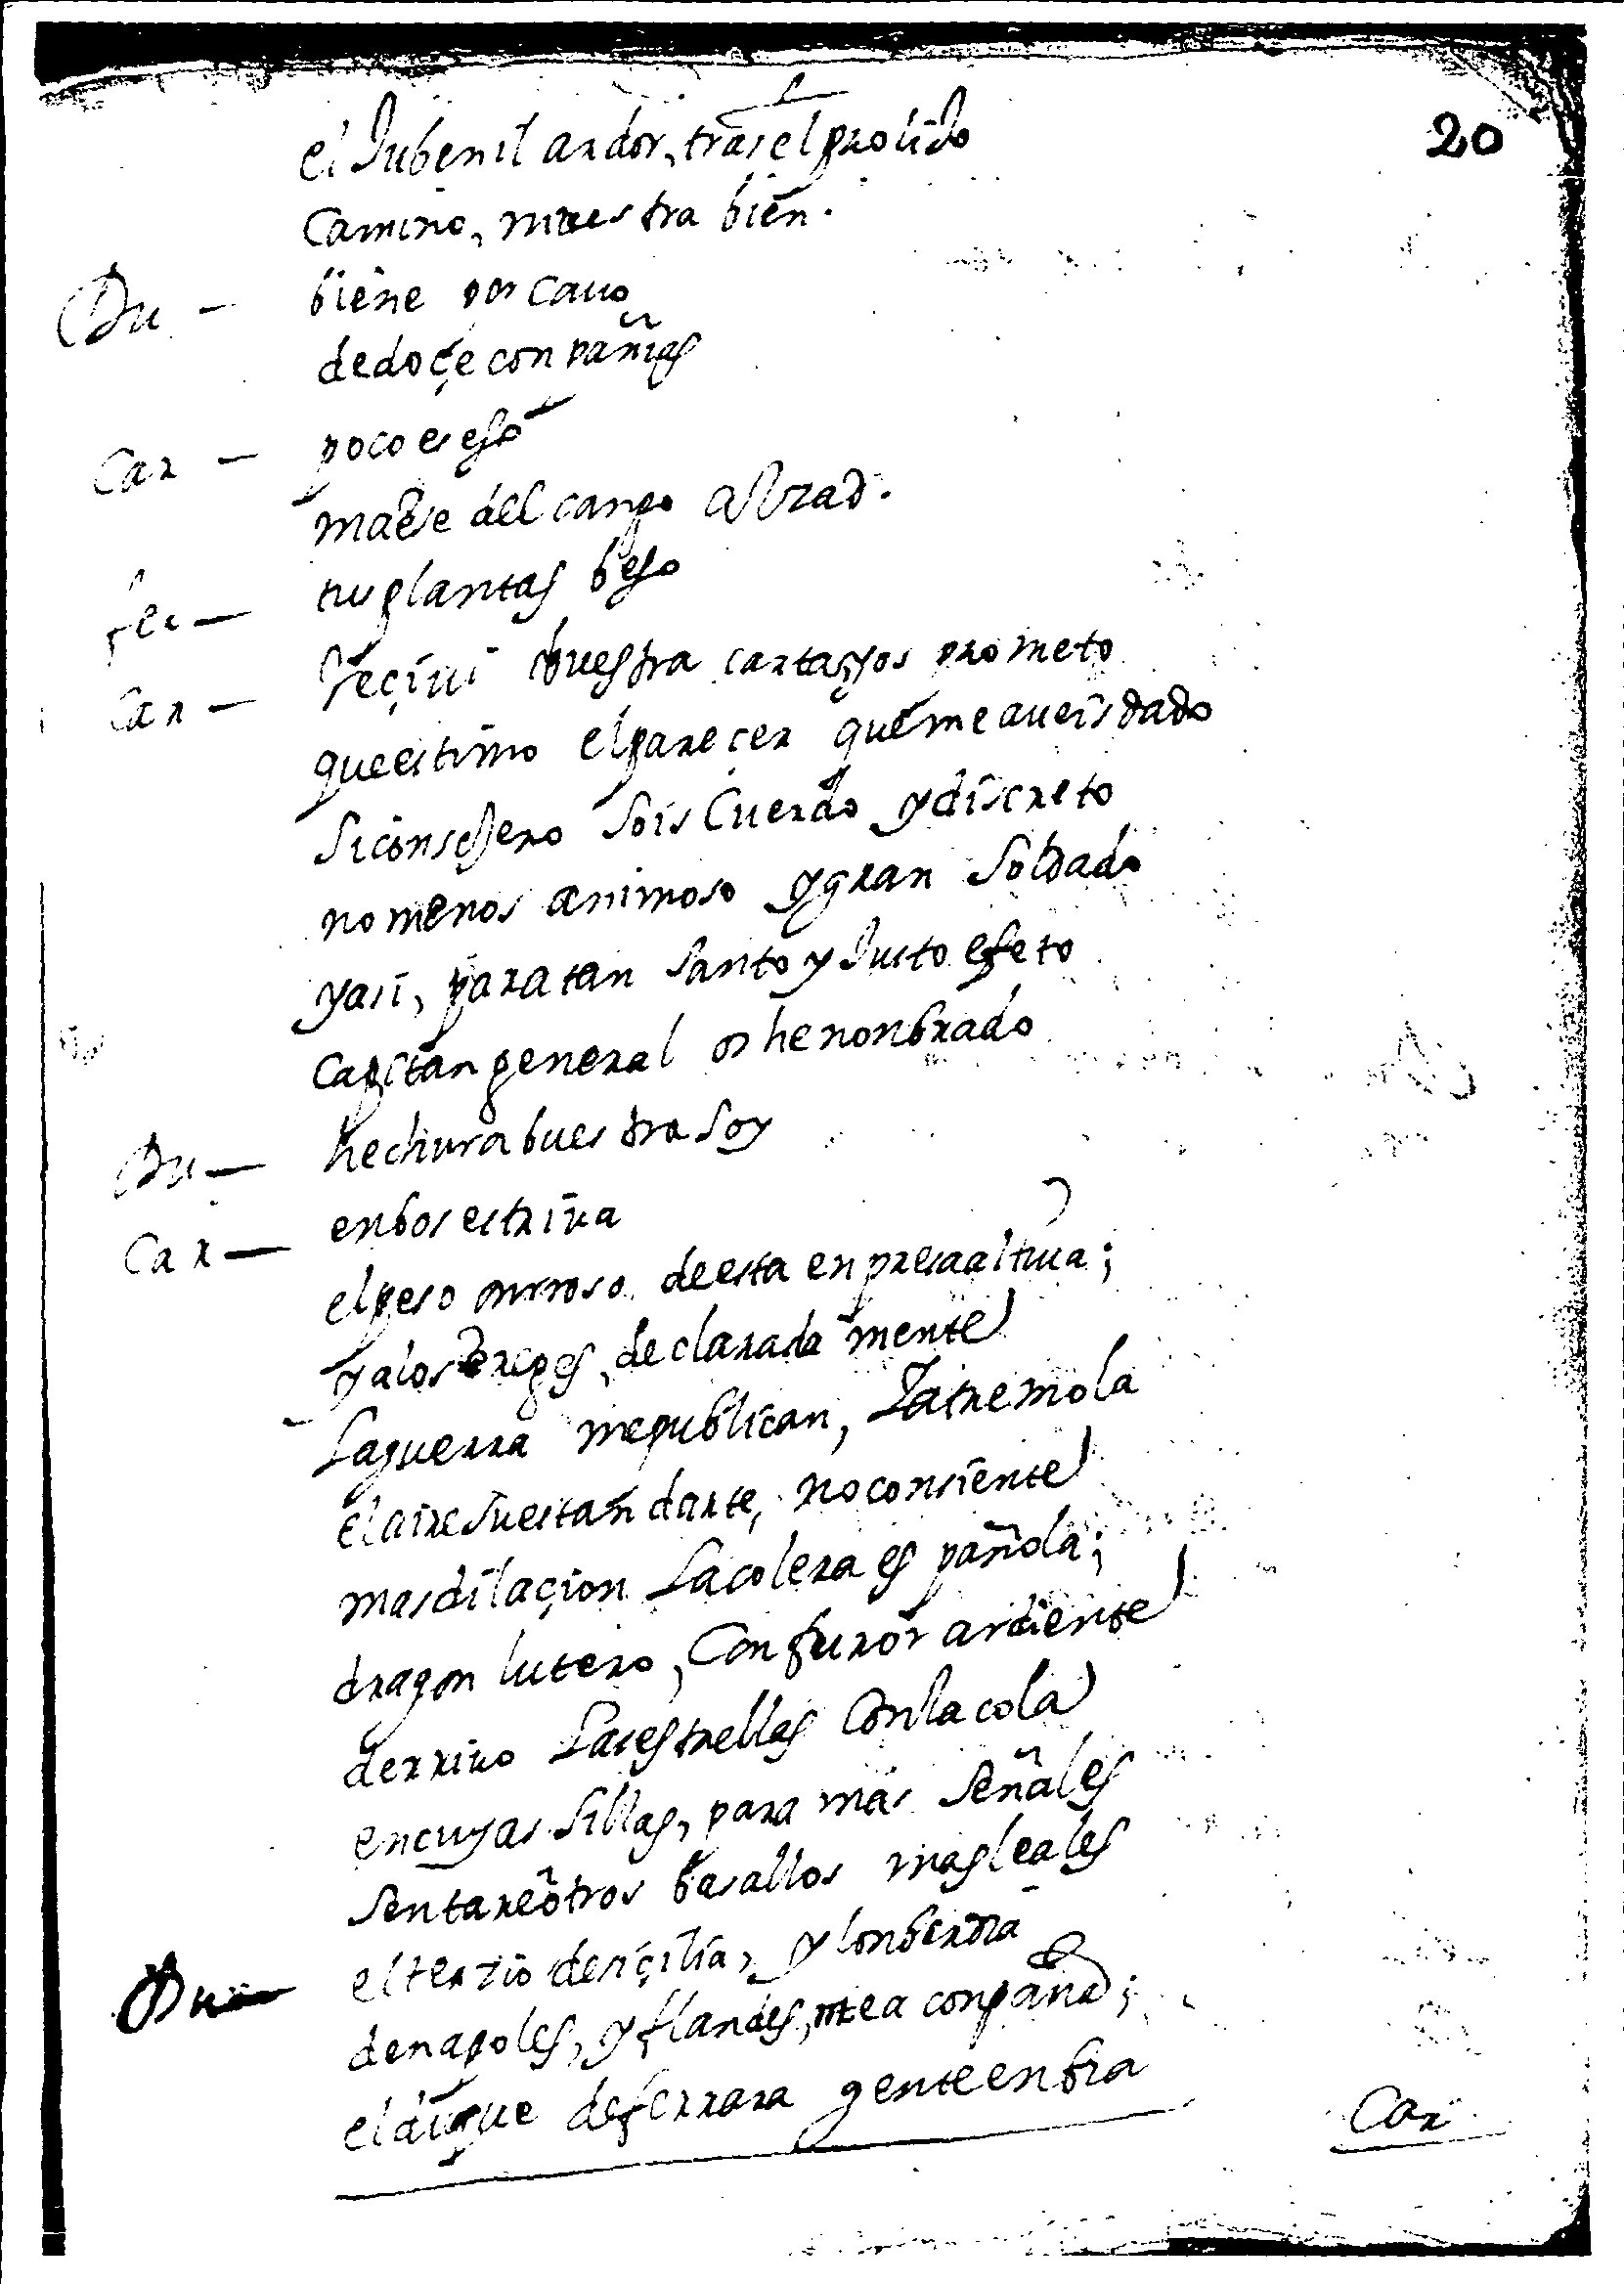 20
el Jubenil ardor, tras el prolijo
Camino, muestra bien.
Du — biene por cauo
de doçe conpañias
Car — poco es eso
maese del canpo alzad.
fer — tus plantas beso
Car — Reçiui buestra carta, y os prometo
que estimo el pareçer que me aueis dado
si consejero sois Cuerdo y discreto
no menos animoso y gran soldado
y asi, para tan santo y Justo efeto
capitan general os he nonbrado
Du — hechura buestra soy
Car — en bos estriua
el peso onroso de esta enpresa altiua;
y a los ereges, declarada mente
La guerra me publican, La tremola
el aire su estandarte, no consiente
mas dilaçion La colera española;
dragon lutero, Con furor ardiente
derriuo Las estrellas Con la cola
en cuyas sillas, para mas señales
sentare otros basallos mas leales
Du — el terzio de siçilia, y lonbardia
de napoles, y flandes, conpañia;
el duque de ferrara gente enbia
Car